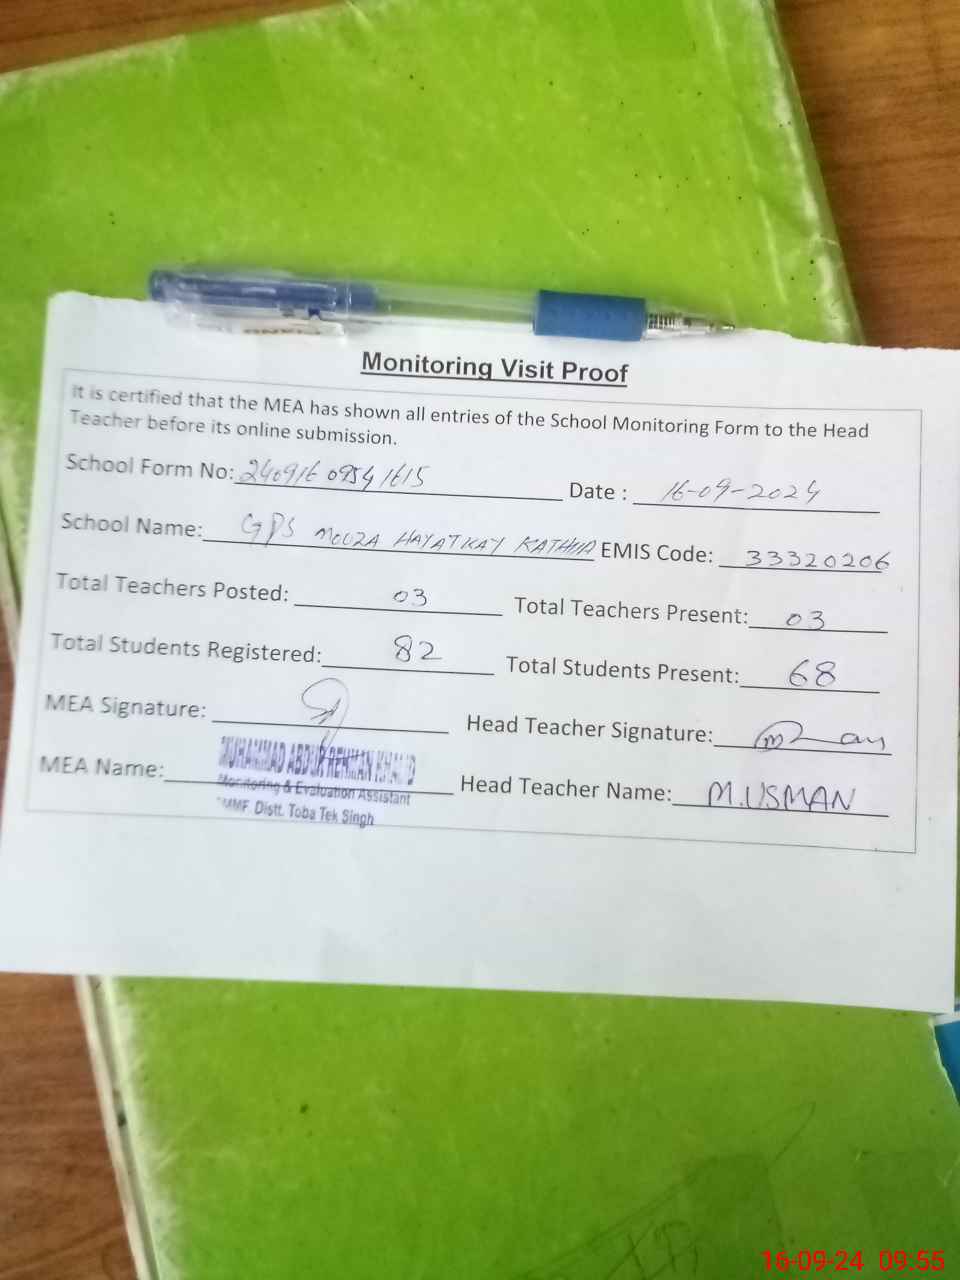 Monitoring Visit Proof
It is certified that the MEA has shown all entries of the School Monitoring Form to the Head
Teacher before its online submission.
School Form No: 240916 0954 1615 Date : 16-09-2024
School Name: GPS MOUZA HAYATKAY KATHIA EMIS Code: 33320206
Total Teachers Posted: 03 Total Teachers Present: 03
Total Students Registered: 82 Total Students Present: 68
MEA Signature: Head Teacher Signature:
MEA Name: MUHAMMAD ABDUR REHMAN KHALID Head Teacher Name: M.USMAN
Monitoring & Evaluation Assistant
Distt. Toba Tek Singh
16-09-24 09:55